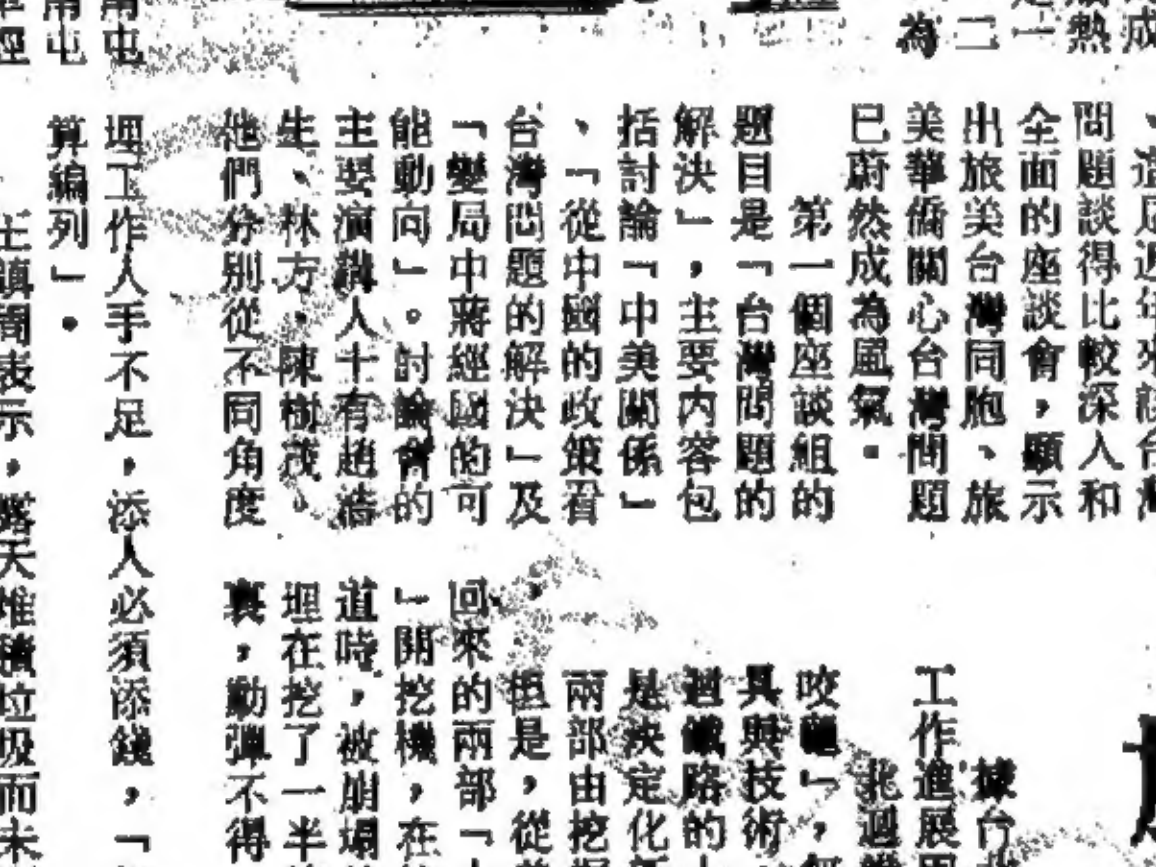 成
熱
一
二
為
問題談得比較深入和
全面的座談會，顯示
出旅美台灣同胞、旅
美華僑關心台灣問題
已蔚然成為風氣。
第一個座談組的
題目是「台灣問題的
解決」，主要內容包
括討論「中美關係」
、「從中國的政策看
台灣問題的解決」及
「變局中蔣經國的可
能動向」。討論會的
主要演講人士有趙浩
生、林方、陳樹茂。
他們分別從不同角度
埋工作人手不足，添人必須添錢，「
算編列」。
表示，露天堆積垃圾而未
據台
工作進展
北迴
咬齧」，
具與技術
迴鐵路的
是決定化
兩部由挖
但是，從
回來的兩部「
」開挖機，在
道時，被崩塌
埋在挖了一半
裏，動彈不得